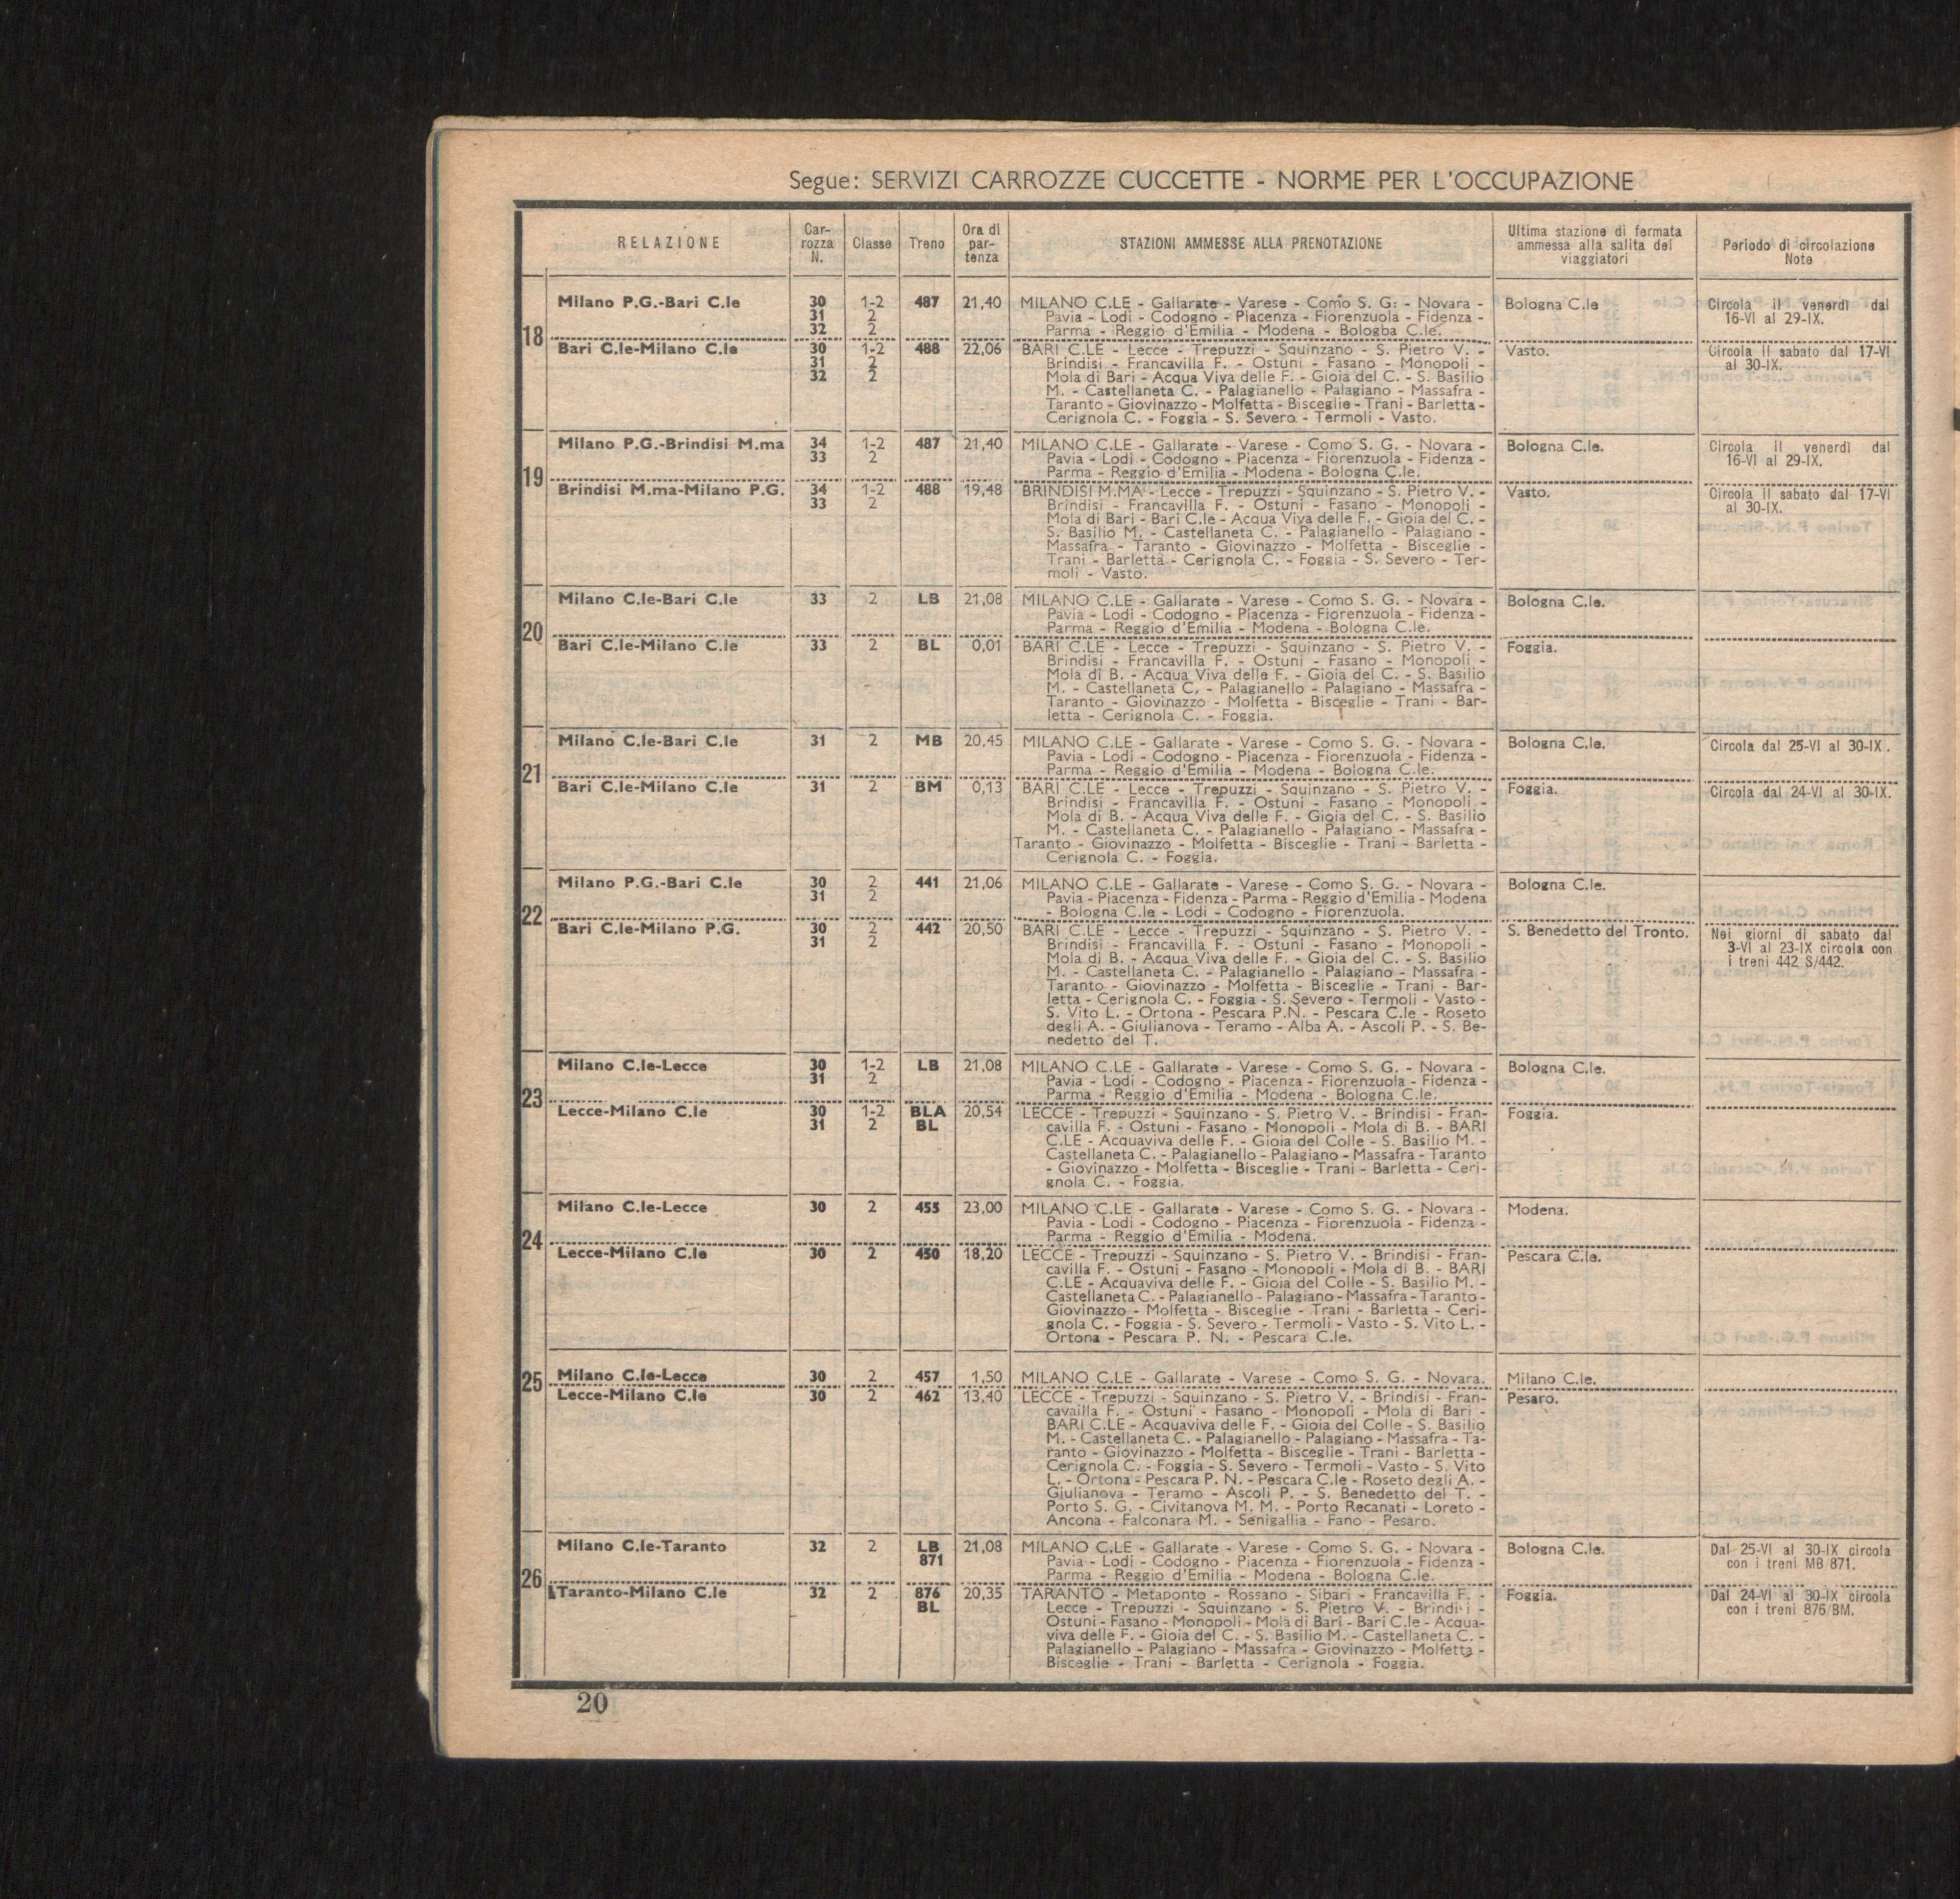 Segue: SERVIZI CARROZZE CUCCETTE - NORME PER L'OCCUPAZIONE
RELAZIONE
Car-
rozza
N.
Classe
Treno
Ora di
par-
tenza
STAZIONI AMMESSE ALLA PRENOTAZIONE
Ultima stazione di fermata
ammessa alla salita dei
viaggiatori
Periodo di circolazione
Note
18
Milano P.G.-Bari C.le 30 1-2 487 21,40 MILANO C.LE - Gallarate - Varese - Como S. G. - Novara - Bologna C.le Circola il venerdì dal
31 2 Pavia - Lodi - Codogno - Piacenza - Fiorenzuola - Fidenza - 16-VI al 29-IX.
32 2 Parma - Reggio d'Emilia - Modena - Bologba C.le.
Bari C.le-Milano C.le 30 1-2 488 22,06 BARI C.LE - Lecce - Trepuzzi - Squinzano - S. Pietro V. - Vasto. Circola il sabato dal 17-VI
31 2 Brindisi - Francavilla F. - Ostuni - Fasano - Monopoli - al 30-IX.
32 2 Mola di Bari - Acqua Viva delle F. - Gioia del C. - S. Basilio
M. - Castellaneta C. - Palagianello - Palagiano - Massafra -
Taranto - Giovinazzo - Molfetta - Bisceglie - Trani - Barletta -
Cerignola C. - Foggia - S. Severo - Termoli - Vasto.
19
Milano P.G.-Brindisi M.ma 34 1-2 487 21,40 MILANO C.LE - Gallarate - Varese - Como S. G. - Novara - Bologna C.le. Circola il venerdì dal
33 2 Pavia - Lodi - Codogno - Piacenza - Fiorenzuola - Fidenza - 16-VI al 29-IX.
Parma - Reggio d'Emilia - Modena - Bologna C.le.
Brindisi M.ma-Milano P.G. 34 1-2 488 19,48 BRINDISI M.MA - Lecce - Trepuzzi - Squinzano - S. Pietro V. - Vasto. Circola il sabato dal 17-VI
33 2 Brindisi - Francavilla F. - Ostuni - Fasano - Monopoli - al 30-IX.
Mola di Bari - Bari C.le - Acqua Viva delle F. - Gioia del C. -
S. Basilio M. - Castellaneta C. - Palagianello - Palagiano -
Massafra - Taranto - Giovinazzo - Molfetta - Bisceglie -
Trani - Barletta - Cerignola C. - Foggia - S. Severo - Ter-
moli - Vasto.
20
Milano C.le-Bari C.le 33 2 LB 21,08 MILANO C.LE - Gallarate - Varese - Como S. G. - Novara - Bologna C.le.
Pavia - Lodi - Codogno - Piacenza - Fiorenzuola - Fidenza -
Parma - Reggio d'Emilia - Modena - Bologna C.le.
Bari C.le-Milano C.le 33 2 BL 0,01 BARI C.LE - Lecce - Trepuzzi - Squinzano - S. Pietro V. - Foggia.
Brindisi - Francavilla F. - Ostuni - Fasano - Monopoli -
Mola di B. - Acqua Viva delle F. - Gioia del C. - S. Basilio
M. - Castellaneta C. - Palagianello - Palagiano - Massafra -
Taranto - Giovinazzo - Molfetta - Bisceglie - Trani - Bar-
letta - Cerignola C. - Foggia.
21
Milano C.le-Bari C.le 31 2 MB 20,45 MILANO C.LE - Gallarate - Varese - Como S. G. - Novara - Bologna C.le. Circola dal 25-VI al 30-IX.
Pavia - Lodi - Codogno - Piacenza - Fiorenzuola - Fidenza -
Parma - Reggio d'Emilia - Modena - Bologna C.le.
Bari C.le-Milano C.le 31 2 BM 0,13 BARI C.LE - Lecce - Trepuzzi - Squinzano - S. Pietro V. - Foggia. Circola dal 24-VI al 30-IX.
Brindisi - Francavilla F. - Ostuni - Fasano - Monopoli -
Mola di B. - Acqua Viva delle F. - Gioia del C. - S. Basilio
M. - Castellaneta C. - Palagianello - Palagiano - Massafra -
Taranto - Giovinazzo - Molfetta - Bisceglie - Trani - Barletta -
Cerignola C. - Foggia.
22
Milano P.G.-Bari C.le 30 2 441 21,06 MILANO C.LE - Gallarate - Varese - Como S. G. - Novara - Bologna C.le.
31 2 Pavia - Piacenza - Fidenza - Parma - Reggio d'Emilia - Modena
- Bologna C.le - Lodi - Codogno - Fiorenzuola.
Bari C.le-Milano P.G. 30 2 442 20,50 BARI C.LE - Lecce - Trepuzzi - Squinzano - S. Pietro V. - S. Benedetto del Tronto. Nei giorni di sabato dal
31 2 Brindisi - Francavilla F. - Ostuni - Fasano - Monopoli - 3-VI al 23-IX circola con
Mola di B. - Acqua Viva delle F. - Gioia del C. - S. Basilio i treni 442 S/442.
M. - Castellaneta C. - Palagianello - Palagiano - Massafra -
Taranto - Giovinazzo - Molfetta - Bisceglie - Trani - Bar-
letta - Cerignola C. - Foggia - S. Severo - Termoli - Vasto -
S. Vito L. - Ortona - Pescara P.N. - Pescara C.le - Roseto
degli A. - Giulianova - Teramo - Alba A. - Ascoli P. - S. Be-
nedetto del T.
23
Milano C.le-Lecce 30 1-2 LB 21,08 MILANO C.LE - Gallarate - Varese - Como S. G. - Novara - Bologna C.le.
31 2 Pavia - Lodi - Codogno - Piacenza - Fiorenzuola - Fidenza -
Parma - Reggio d'Emilia - Modena - Bologna C.le.
Lecce-Milano C.le 30 1-2 BLA 20,54 LECCE - Trepuzzi - Squinzano - S. Pietro V. - Brindisi - Fran- Foggia.
31 2 BL cavilla F. - Ostuni - Fasano - Monopoli - Mola di B. - BARI
C.LE - Acquaviva delle F. - Gioia del Colle - S. Basilio M. -
Castellaneta C. - Palagianello - Palagiano - Massafra - Taranto
- Giovinazzo - Molfetta - Bisceglie - Trani - Barletta - Ceri-
gnola C. - Foggia.
24
Milano C.le-Lecce 30 2 455 23,00 MILANO C.LE - Gallarate - Varese - Como S. G. - Novara - Modena.
Pavia - Lodi - Codogno - Piacenza - Fiorenzuola - Fidenza -
Parma - Reggio d'Emilia - Modena.
Lecce-Milano C.le 30 2 450 18,20 LECCE - Trepuzzi - Squinzano - S. Pietro V. - Brindisi - Fran- Pescara C.le.
cavilla F. - Ostuni - Fasano - Monopoli - Mola di B. - BARI
C.LE - Acquaviva delle F. - Gioia del Colle - S. Basilio M. -
Castellaneta C. - Palagianello - Palagiano - Massafra - Taranto -
Giovinazzo - Molfetta - Bisceglie - Trani - Barletta - Ceri-
gnola C. - Foggia - S. Severo - Termoli - Vasto - S. Vito L. -
Ortona - Pescara P. N. - Pescara C.le.
25
Milano C.le-Lecce 30 2 457 1,50 MILANO C.LE - Gallarate - Varese - Como S. G. - Novara. Milano C.le.
Lecce-Milano C.le 30 2 462 13,40 LECCE - Trepuzzi - Squinzano - S. Pietro V. - Brindisi - Fran- Pesaro.
cavailla F. - Ostuni - Fasano - Monopoli - Mola di Bari -
BARI C.LE - Acquaviva delle F. - Gioia del Colle - S. Basilio
M. - Castellaneta C. - Palagianello - Palagiano - Massafra - Ta-
ranto - Giovinazzo - Molfetta - Bisceglie - Trani - Barletta -
Cerignola C. - Foggia - S. Severo - Termoli - Vasto - S. Vito
L. - Ortona - Pescara P. N. - Pescara C.le - Roseto degli A. -
Giulianova - Teramo - Ascoli P. - S. Benedetto del T. -
Porto S. G. - Civitanova M. M. - Porto Recanati - Loreto -
Ancona - Falconara M. - Senigallia - Fano - Pesaro.
26
Milano C.le-Taranto 32 2 LB 21,08 MILANO C.LE - Gallarate - Varese - Como S. G. - Novara - Bologna C.le. Dal 25-VI al 30-IX circola
871 Pavia - Lodi - Codogno - Piacenza - Fiorenzuola - Fidenza - con i treni MB 871.
Parma - Reggio d'Emilia - Modena - Bologna C.le.
Taranto-Milano C.le 32 2 876 20,35 TARANTO - Metaponto - Rossano - Sibari - Francavilla F. - Foggia. Dal 24-VI al 30-IX circola
BL Lecce - Trepuzzi - Squinzano - S. Pietro V. - Brindisi - con i treni 876/BM.
Ostuni - Fasano - Monopoli - Mola di Bari - Bari C.le - Acqua-
viva delle F. - Gioia del C. - S. Basilio M. - Castellaneta C. -
Palagianello - Palagiano - Massafra - Giovinazzo - Molfetta -
Bisceglie - Trani - Barletta - Cerignola - Foggia.
20